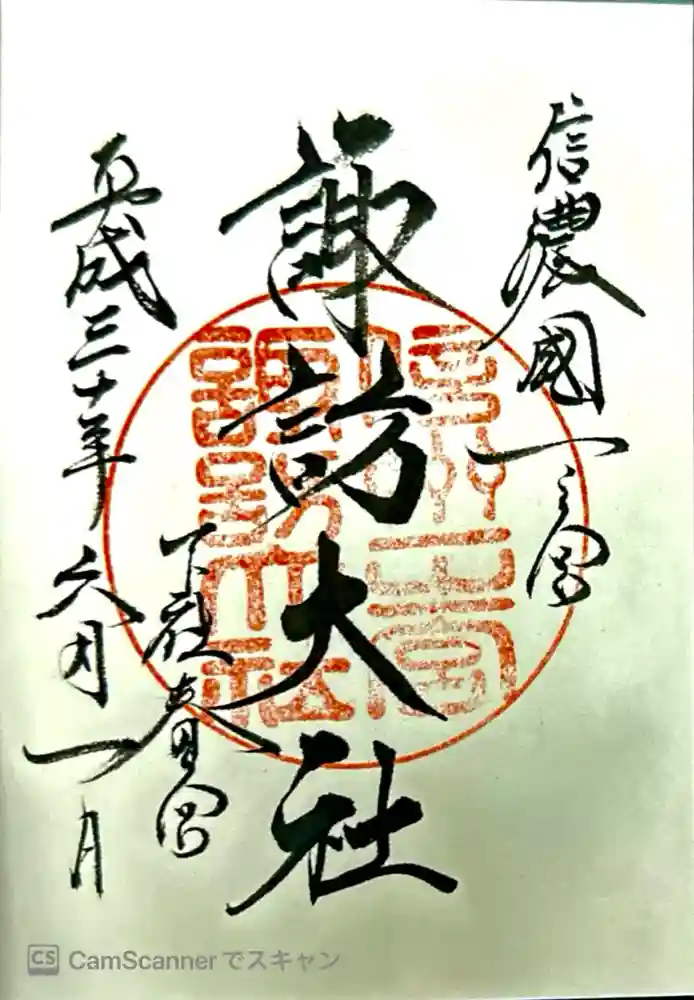 信濃國一之宮
諏訪大社
下社春宮
平成三十年六月一日
諏訪大社
CS CamScannerでスキャン